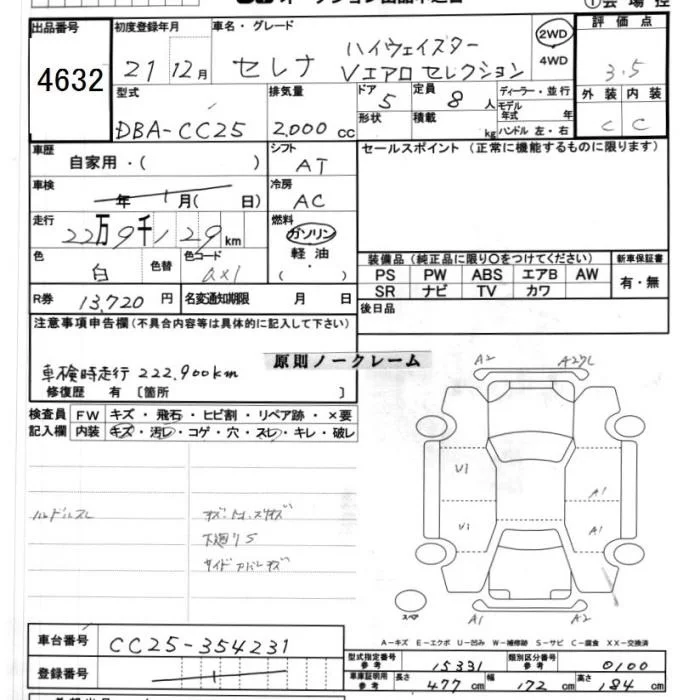 出品番号 4632
初度登録年月 21 12月
車名・グレード セレナ ハイウェイスター Vエアロセレクション
2WD
4WD
評価点 3.5
外装 C 内装 C
型式 DBA-CC25
排気量 2,000 cc
ドア 5
形状
定員 8 人
積載 kg
ディーラー・並行
モデル年式 年
ハンドル 左・右
車歴 自家用・( )
シフト AT
セールスポイント (正常に機能するものに限ります)
車検 年 月( 日)
冷房 AC
走行 22万9千129km
燃料 ガソリン 軽油 ・ ( )
色 白 色替 色コード QX1
装備品 (純正品に限り〇をつけてください)
新車保証書
PS PW ABS エアB AW
SR ナビ TV カワ
有・無
R券 13,720円 名変通知期限 月 日
後日品
注意事項申告欄(不具合内容等は具体的に記入して下さい)
原則ノークレーム
車検時走行 222,900km
修復歴 有〔箇所 〕
検査員記入欄
FW キズ・飛石・ヒビ割・リペア跡・×要
内装 キズ・汚レ・コゲ・穴・スレ・キレ・破レ
ハンドルスレ
下廻りS
A2 A27L
U1
U1
A1
A1
A1 A2
スペア
A-キズ E-エクボ U-凹み W-補修跡 S-サビ C-腐食 XX-交換済
車台番号 CC25-354231
登録番号
型式指定番号 参考 15331
類別区分番号 参考 0100
車庫証明用 参考 長さ 477cm 幅 172cm 高さ 184cm